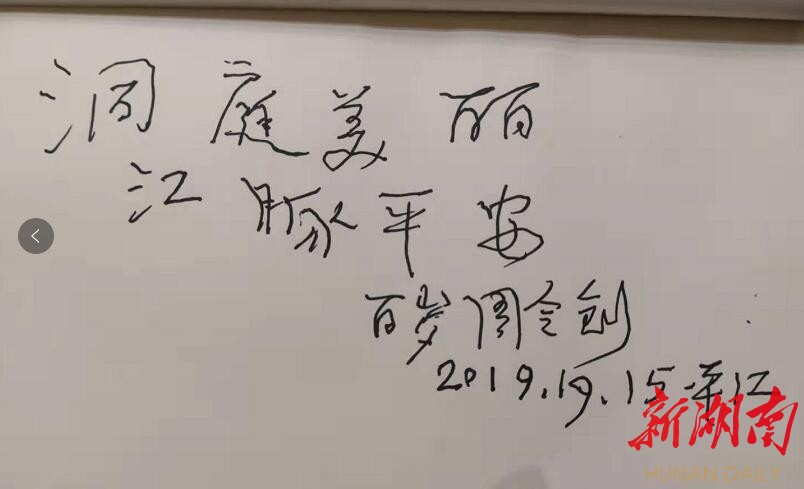 洞庭美丽
江豚平安
百岁周令钊
2019.10.15.平江
新湖南
HUNAN DAILY